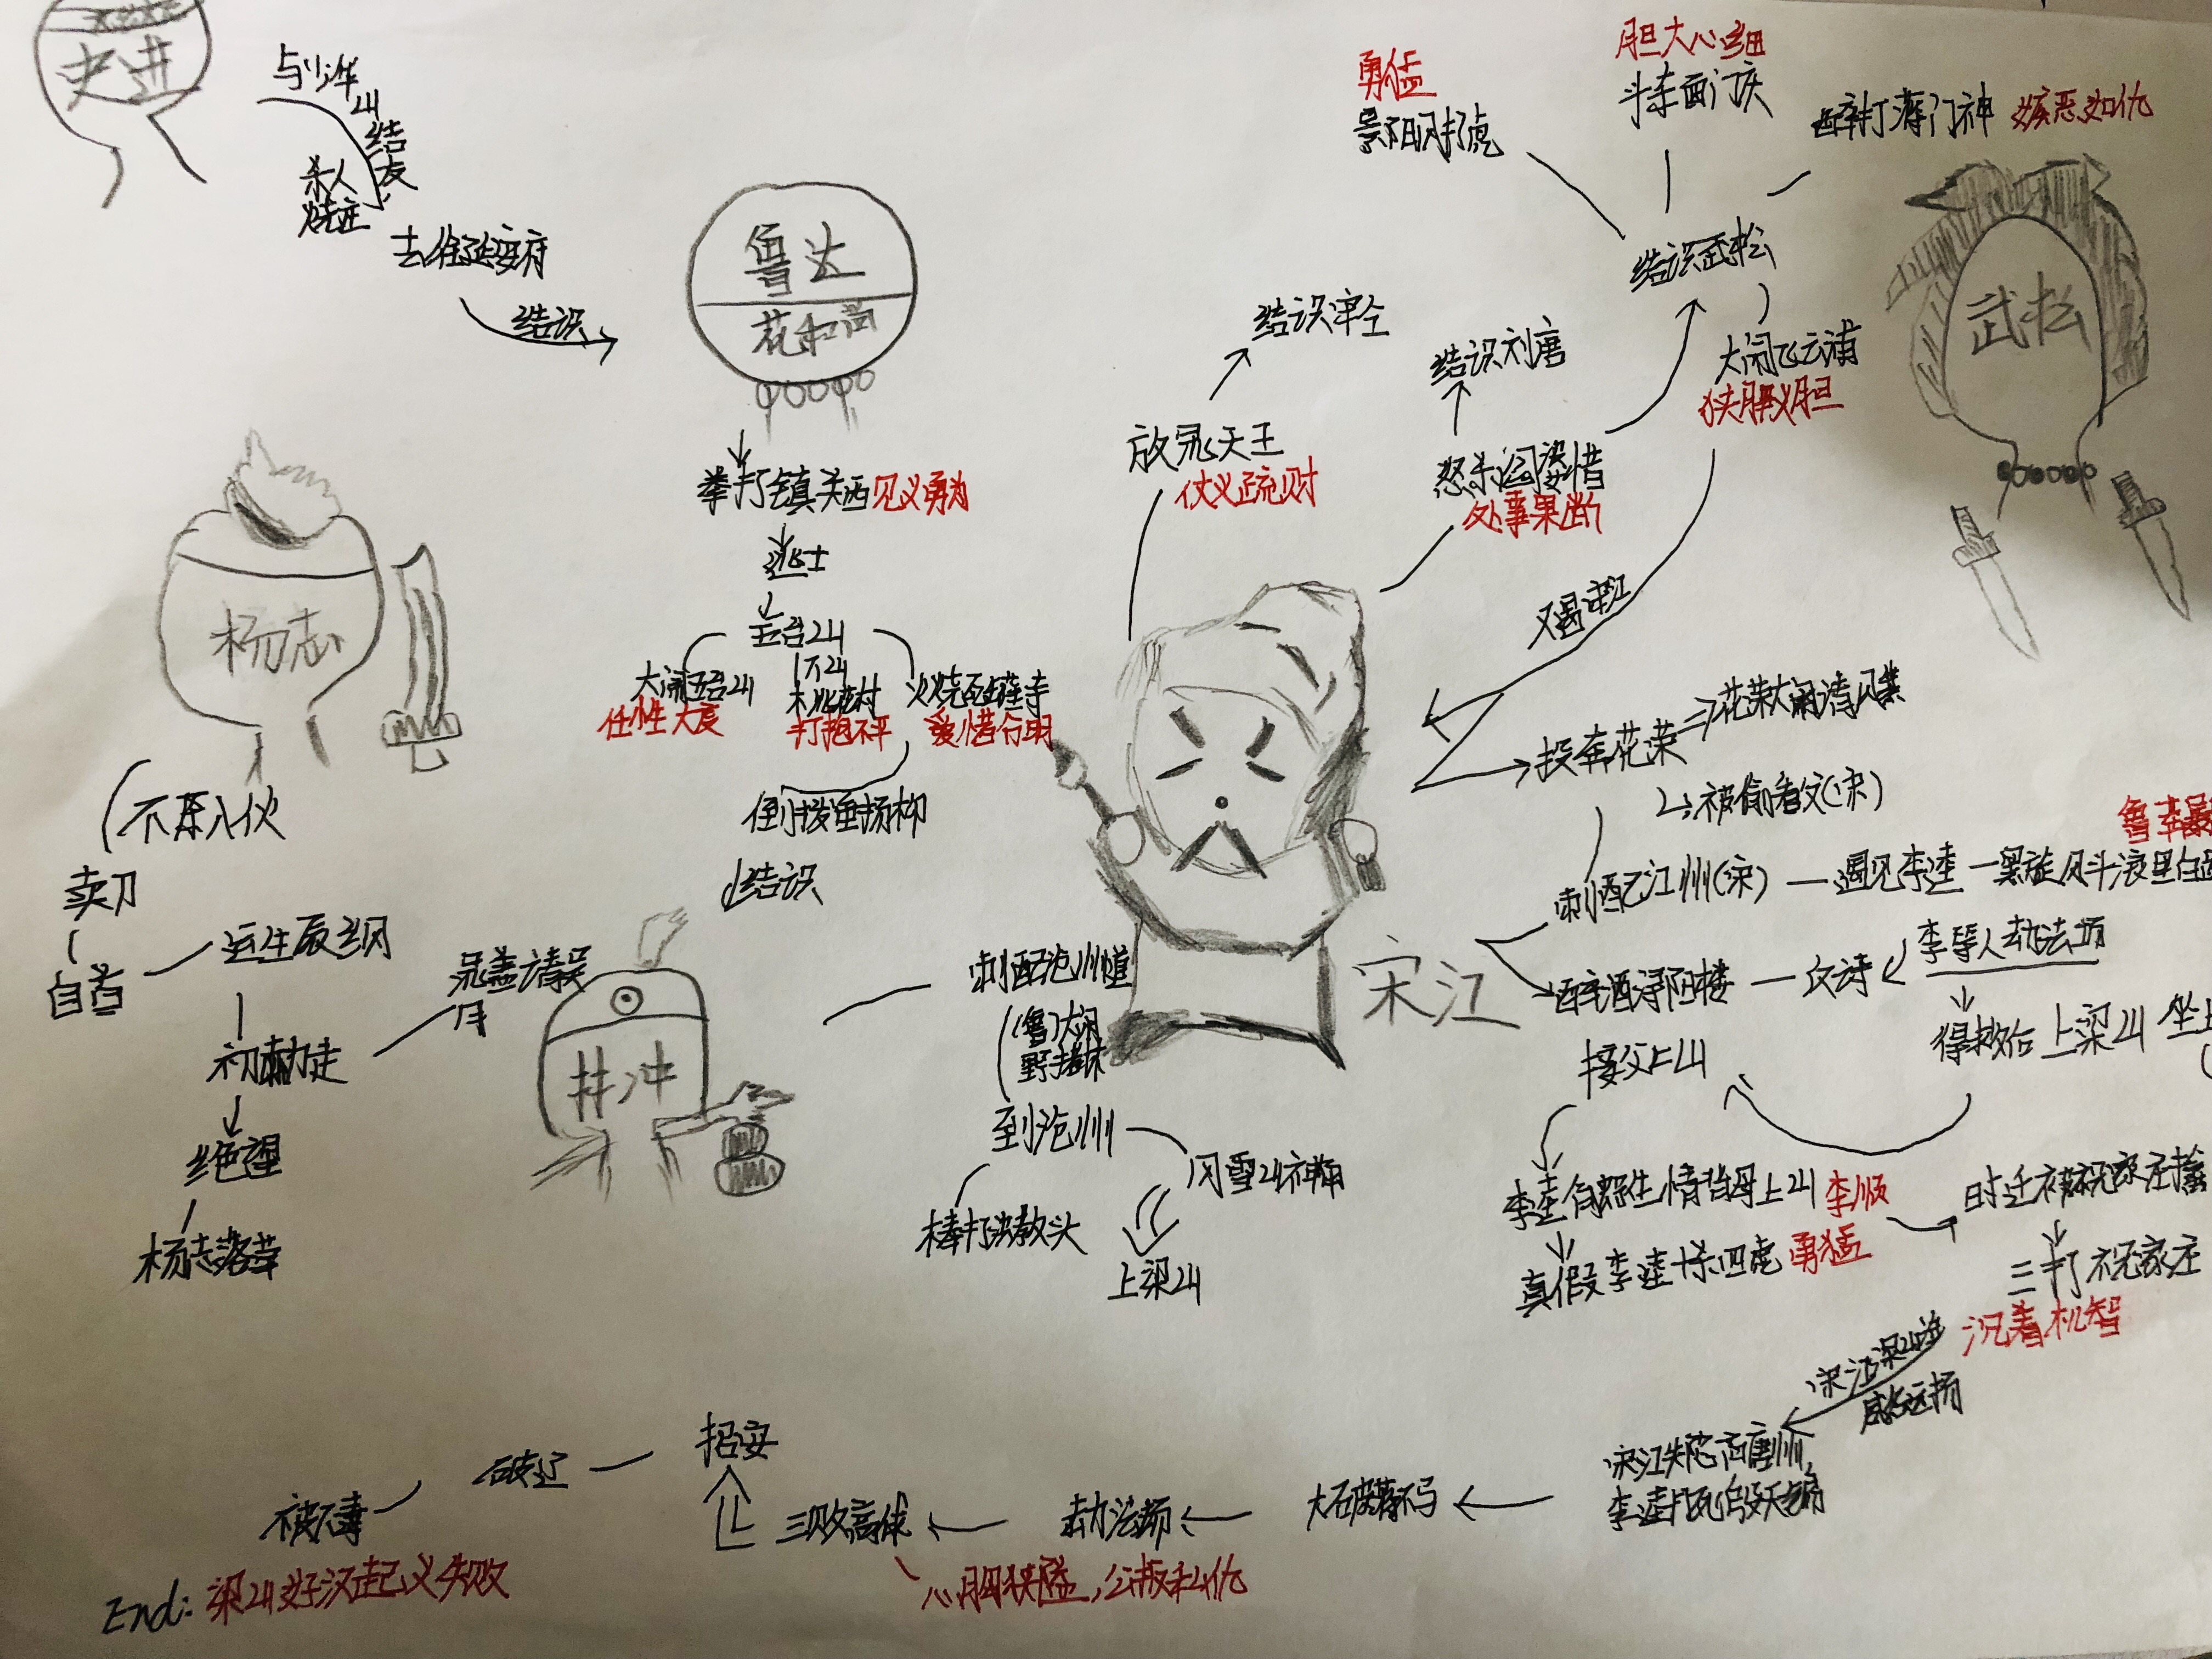 史进
与少华
山
结
友
杀人
烧庄
去往延安府
结识
鲁达
花和尚
拳打镇关西 见义勇为
逃亡
五台山
大闹五台山
任性大度
下山
桃花村
打抱不平
火烧瓦罐寺
爱憎分明
倒拔垂杨柳
结识
林冲
刺配沧州道
(鲁)大闹
野猪林
到沧州
棒打洪教头
风雪山神庙
上梁山
杨志
不愿入伙
卖刀
自首
运生辰纲
初劫走
晁盖请吴
用
绝望
杨志落草
宋江
放晁天王
仗义疏财
结识
怒杀阎婆惜
处事果断
结识刘唐
结识武松
勇猛
景阳冈打虎
胆大心细
斗杀西门庆
醉打蒋门神 嫉恶如仇
大闹飞云浦
侠肝义胆
武松
又遇宋江
投奔花荣 花荣大闹清风寨
被
刺配江州(宋) 遇见李逵 黑旋风斗浪里白
鲁莽
醉酒浔阳楼 反诗 李等人劫法场
得救后上梁山 坐上
接父上山
李逵 背母上山 李顺
真假李逵 杀四虎 勇猛
时迁被祝家庄擒
三打祝家庄
沉着机智
宋江梁山
威名远扬
宋江失陷高唐州
李逵
大破
劫法场
三败高俅
心胸狭隘,公报私仇
招安
破辽
被毒
End: 梁山好汉起义失败